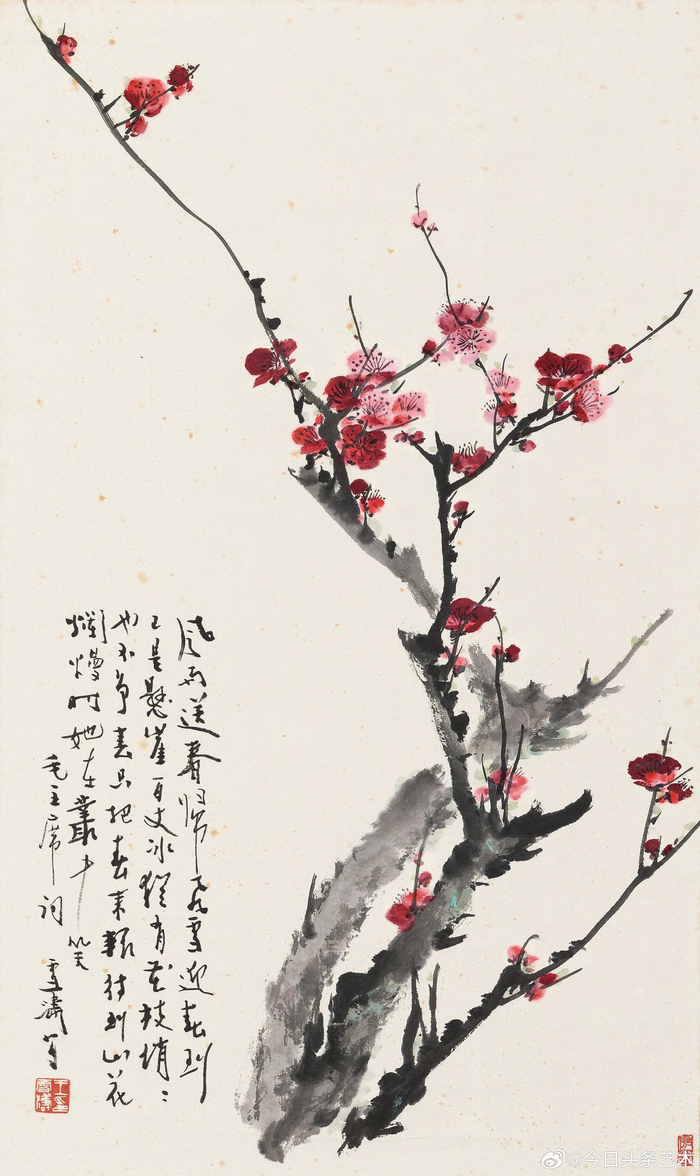 风雨送春归飞雪迎春到
已是懸崖百丈冰猶有花枝俏：
也不争春只把春来報待到山花
爛熳时她在叢中笑
毛主席词 雪濤写
@今日头条艺